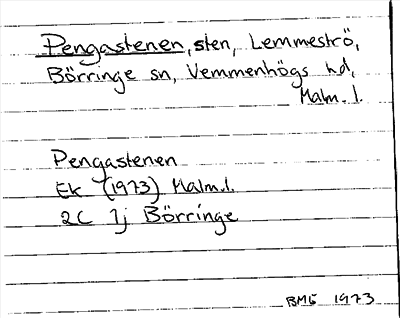 Pengastenen, sten, Lemmeströ,
Börringe sn, Vemmenhögs hd,
Malm. l.
Pengastenen
Ek (1973) Malm.l.
2C 1j Börringe
BMG 1973